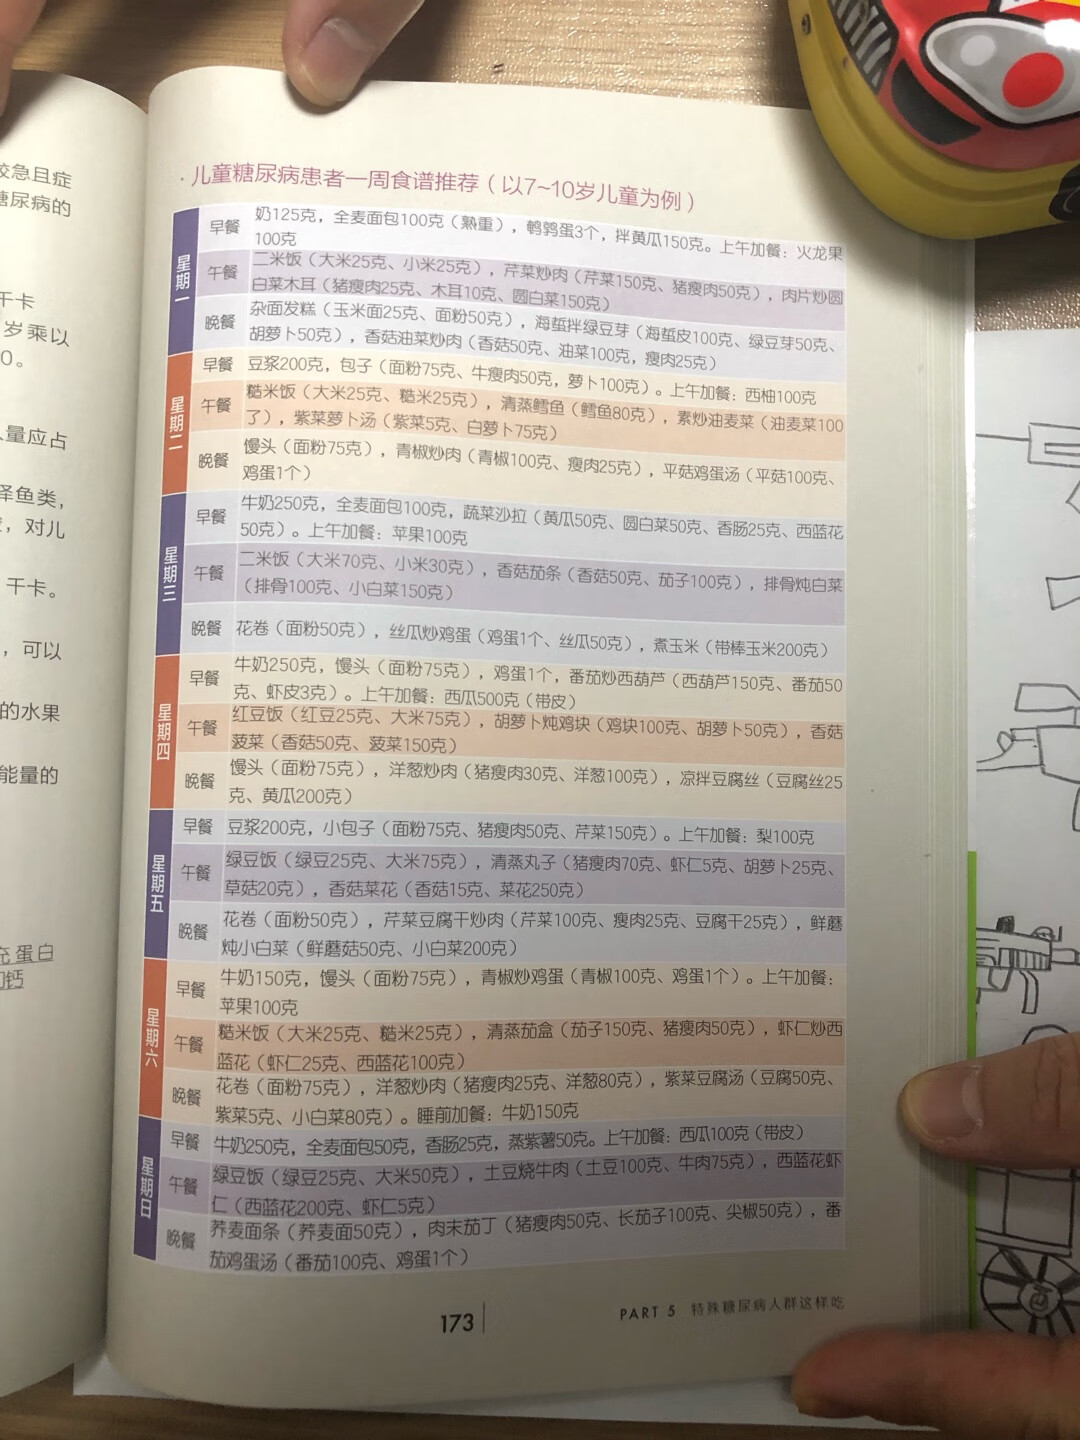 较急且症
糖尿病的
干卡
岁乘以
0。
量应占
择鱼类，
，对儿
千卡。
，可以
的水果
能量的
充蛋白
钙
·儿童糖尿病患者一周食谱推荐（以7~10岁儿童为例）
星期一
早餐
奶125克，全麦面包100克（熟重），鹌鹑蛋3个，拌黄瓜150克。上午加餐：火龙果
100克
午餐
二米饭（大米25克、小米25克），芹菜炒肉（芹菜150克、猪瘦肉50克），肉片炒圆
白菜木耳（猪瘦肉25克、木耳10克、圆白菜150克）
晚餐
杂面发糕（玉米面25克、面粉50克），海蜇拌绿豆芽（海蜇皮100克、绿豆芽50克、
胡萝卜50克），香菇油菜炒肉（香菇50克、油菜100克，瘦肉25克）
星期二
早餐
豆浆200克，包子（面粉75克、牛瘦肉50克，萝卜100克）。上午加餐：西柚100克
午餐
糙米饭（大米25克、糙米25克），清蒸鳕鱼（鳕鱼80克），素炒油麦菜（油麦菜100
了），紫菜萝卜汤（紫菜5克、白萝卜75克）
晚餐
馒头（面粉75克），青椒炒肉（青椒100克、瘦肉25克），平菇鸡蛋汤（平菇100克、
鸡蛋1个）
星期三
早餐
牛奶250克，全麦面包100克，蔬菜沙拉（黄瓜50克、圆白菜50克、香肠25克、西蓝花
50克）。上午加餐：苹果100克
午餐
二米饭（大米70克、小米30克），香菇茄条（香菇50克、茄子100克），排骨炖白菜
（排骨100克、小白菜150克）
晚餐
花卷（面粉50克），丝瓜炒鸡蛋（鸡蛋1个、丝瓜50克），煮玉米（带棒玉米200克）
星期四
早餐
牛奶250克，馒头（面粉75克），鸡蛋1个，番茄炒西葫芦（西葫芦150克、番茄50
克、虾皮3克）。上午加餐：西瓜500克（带皮）
午餐
红豆饭（红豆25克、大米75克），胡萝卜炖鸡块（鸡块100克、胡萝卜50克），香菇
菠菜（香菇50克、菠菜150克）
晚餐
馒头（面粉75克），洋葱炒肉（猪瘦肉30克、洋葱100克），凉拌豆腐丝（豆腐丝25
克、黄瓜200克）
星期五
早餐
豆浆200克，小包子（面粉75克、猪瘦肉50克、芹菜150克）。上午加餐：梨100克
午餐
绿豆饭（绿豆25克、大米75克），清蒸丸子（猪瘦肉70克、虾仁5克、胡萝卜25克、
草菇20克），香菇菜花（香菇15克、菜花250克）
晚餐
花卷（面粉50克），芹菜豆腐干炒肉（芹菜100克、瘦肉25克、豆腐干25克），鲜蘑
炖小白菜（鲜蘑菇50克、小白菜200克）
星期六
早餐
牛奶150克，馒头（面粉75克），青椒炒鸡蛋（青椒100克、鸡蛋1个）。上午加餐：
苹果100克
午餐
糙米饭（大米25克、糙米25克），清蒸茄盒（茄子150克、猪瘦肉50克），虾仁炒西
蓝花（虾仁25克、西蓝花100克）
晚餐
花卷（面粉75克），洋葱炒肉（猪瘦肉25克、洋葱80克），紫菜豆腐汤（豆腐50克、
紫菜5克、小白菜80克）。睡前加餐：牛奶150克
星期日
早餐
牛奶250克，全麦面包50克，香肠25克，蒸紫薯50克。上午加餐：西瓜100克（带皮）
午餐
绿豆饭（绿豆25克、大米50克），土豆烧牛肉（土豆100克、牛肉75克），西蓝花虾
仁（西蓝花200克、虾仁5克）
晚餐
荞麦面条（荞麦面50克），肉末茄丁（猪瘦肉50克、长茄子100克、尖椒50克），番
茄鸡蛋汤（番茄100克、鸡蛋1个）
173
PART 5 特殊糖尿病人群这样吃